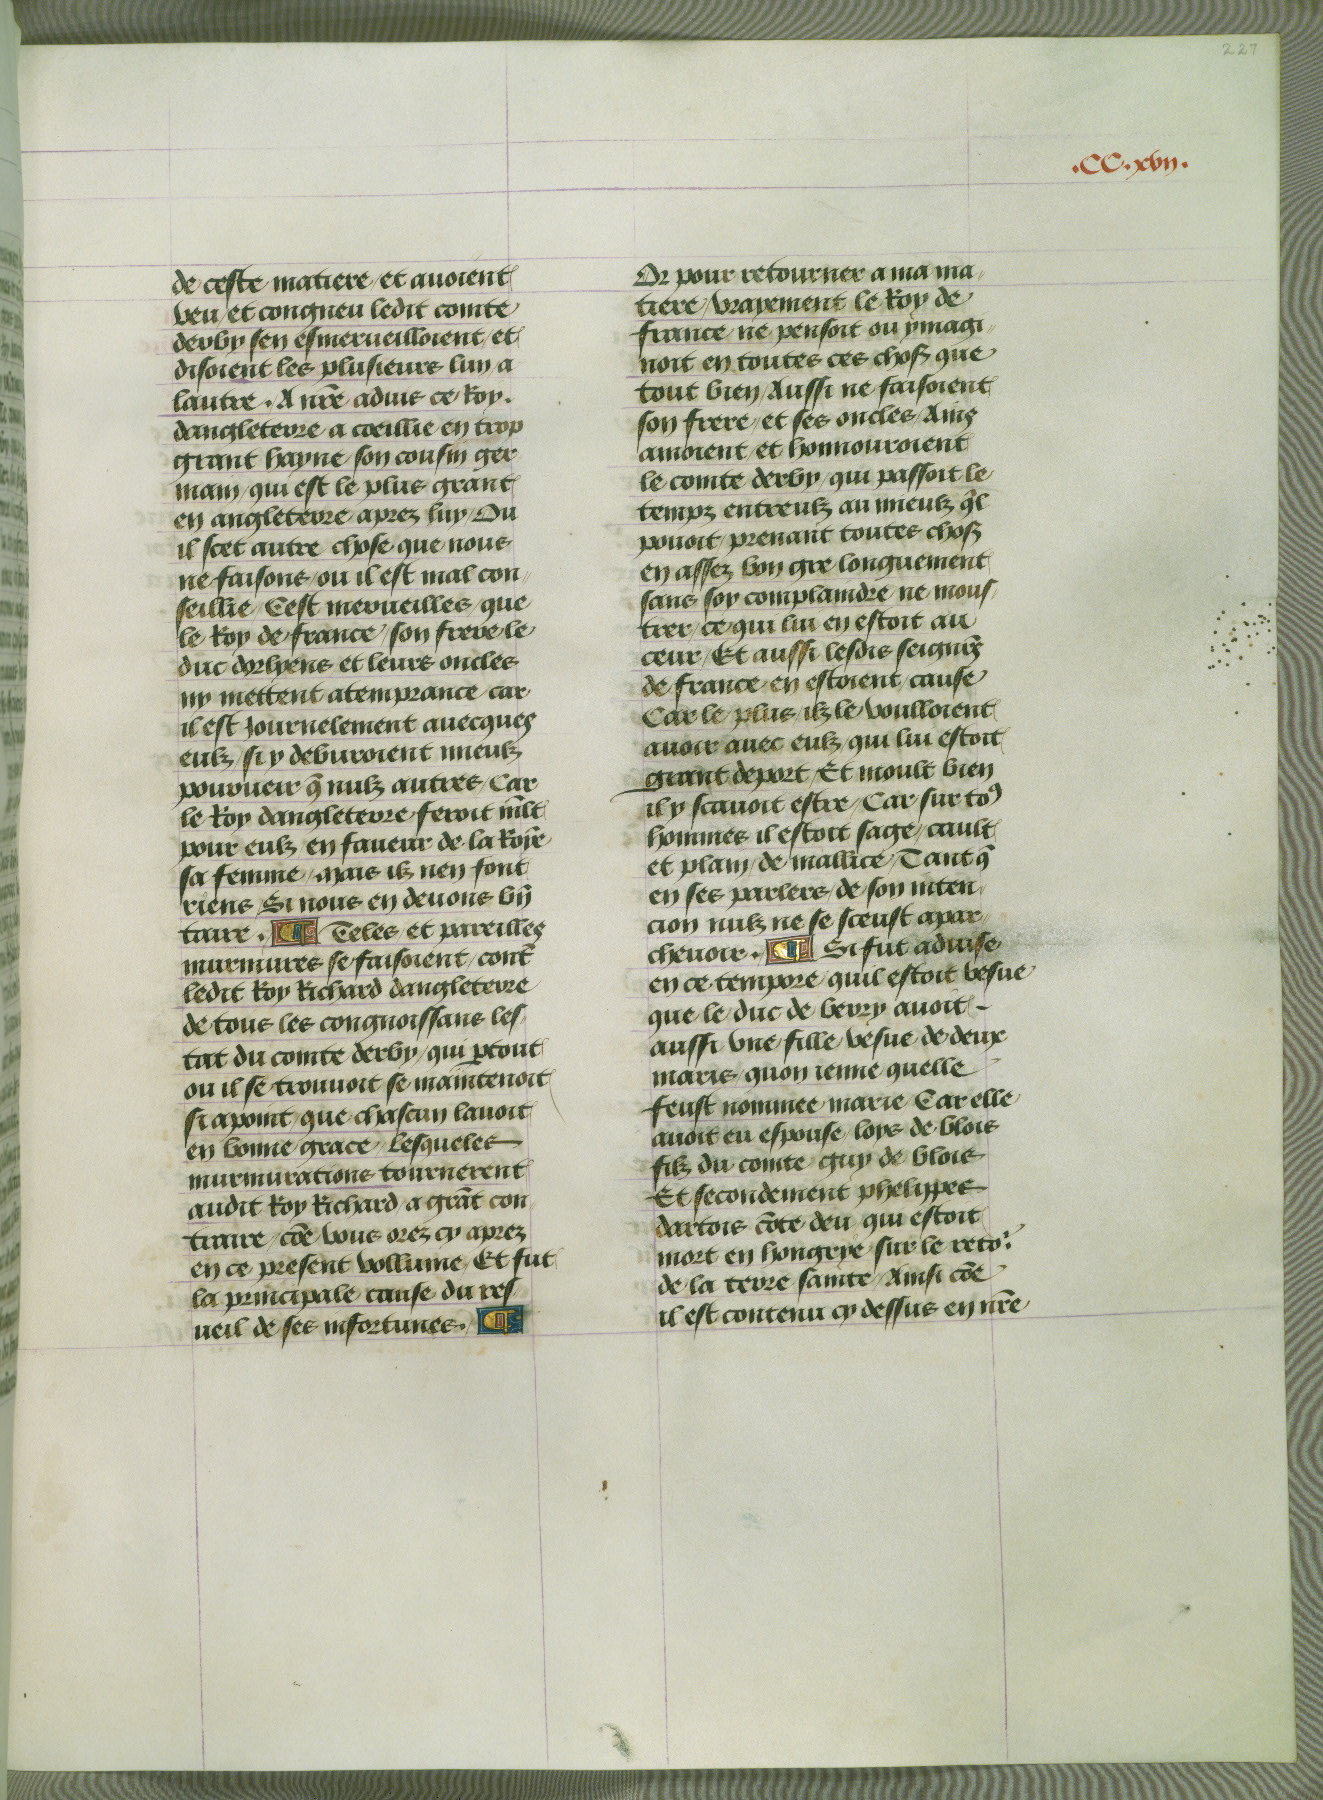 227
.CC.xvij.
de ceste matiere / et auoient
veu / et congneu ledit comte
derby sen esmerueilloient / et
disoient les plusieurs luy a
lautre . A nr̄e aduis ce Roy .
dangleterre a coeillie en trop
grant hayne son cousin ger
main / qui est le plus grant
en angleterre aprez luy / Ou
il scet autre chose que nous
ne faisons / ou il est mal con„
seillie / Cest merueilles / que
le Roy de france / son frere le
duc dorlyens et leurs oncles
ny mettent atemprance / car
il est journelement auecques
eulz / si y deburoient mieulz
pourueir q̄ nulz autres / Car
le Roy dangleterre feroit ml̄t
pour eulz en faueur de la Roỹe
sa femme / mais ilz nen font
riens / Si nous en deuons bn̄
taire . ¶ Teles et pareilles
murmures se faisoient / cont̄
ledit Roy Richard dangleterre
de tous les congnoissans les
tat du comte derby / qui p̱tout
ou il se trouuoit se maintenoit
si apoint / que chascun lauoit
en bonne grace / Lesqueles
murmurations tournerent
audit Roy Richard a grāt con
traire / cōe vous orez cy aprez
en ce present vollume / Et fut
la principale cause du res
ueil de ses infortunes . ¶
Or pour retourner a ma ma„
tiere / vrayement le Roy de
france ne pensoit ou ymagi„
noit en toutes ces chos̄ que
tout bien / Aussi ne faisoient
son frere / et ses oncles / Ains
amoient / et honnouroient
le comte derby / qui passoit le
tempz entreulz au mieulz q̄l
pouoit / prenant toutes chos̄
en assez bon gre longuement
sans soy complaindre ne mous
trer / ce qui lui en estoit au
ceur / Et aussi lesdis seign̄rs
de france en estoient / cause
Car le plus / ilz le voulloient
auoir auec eulz / qui lui estoit
grant deport / Et moult bien
il y scauoit estre / Car sur toꝰ
hommes il estoit sage / cault
et plain / de mallice / Tant q̄
en ses parlers / de son inten„
cion nulz ne se sceust apar„
cheuoir . ¶ Si fut aduise
en ce tempore / quil estoit vesue
que le duc de berry auoit -
aussi vne fille vesue de deux
maris / quon ienne quelle
feust nommee marie / Car elle
auoit eu espouse / loys de blois
filz du comte guy de blois
Et secondement phelippes
dartois cōte deu / qui estoit
mort en hongrye sur le reto͛
de la terre sainte / Ainsi cōe
il est contenu cy dessus en nr̄e